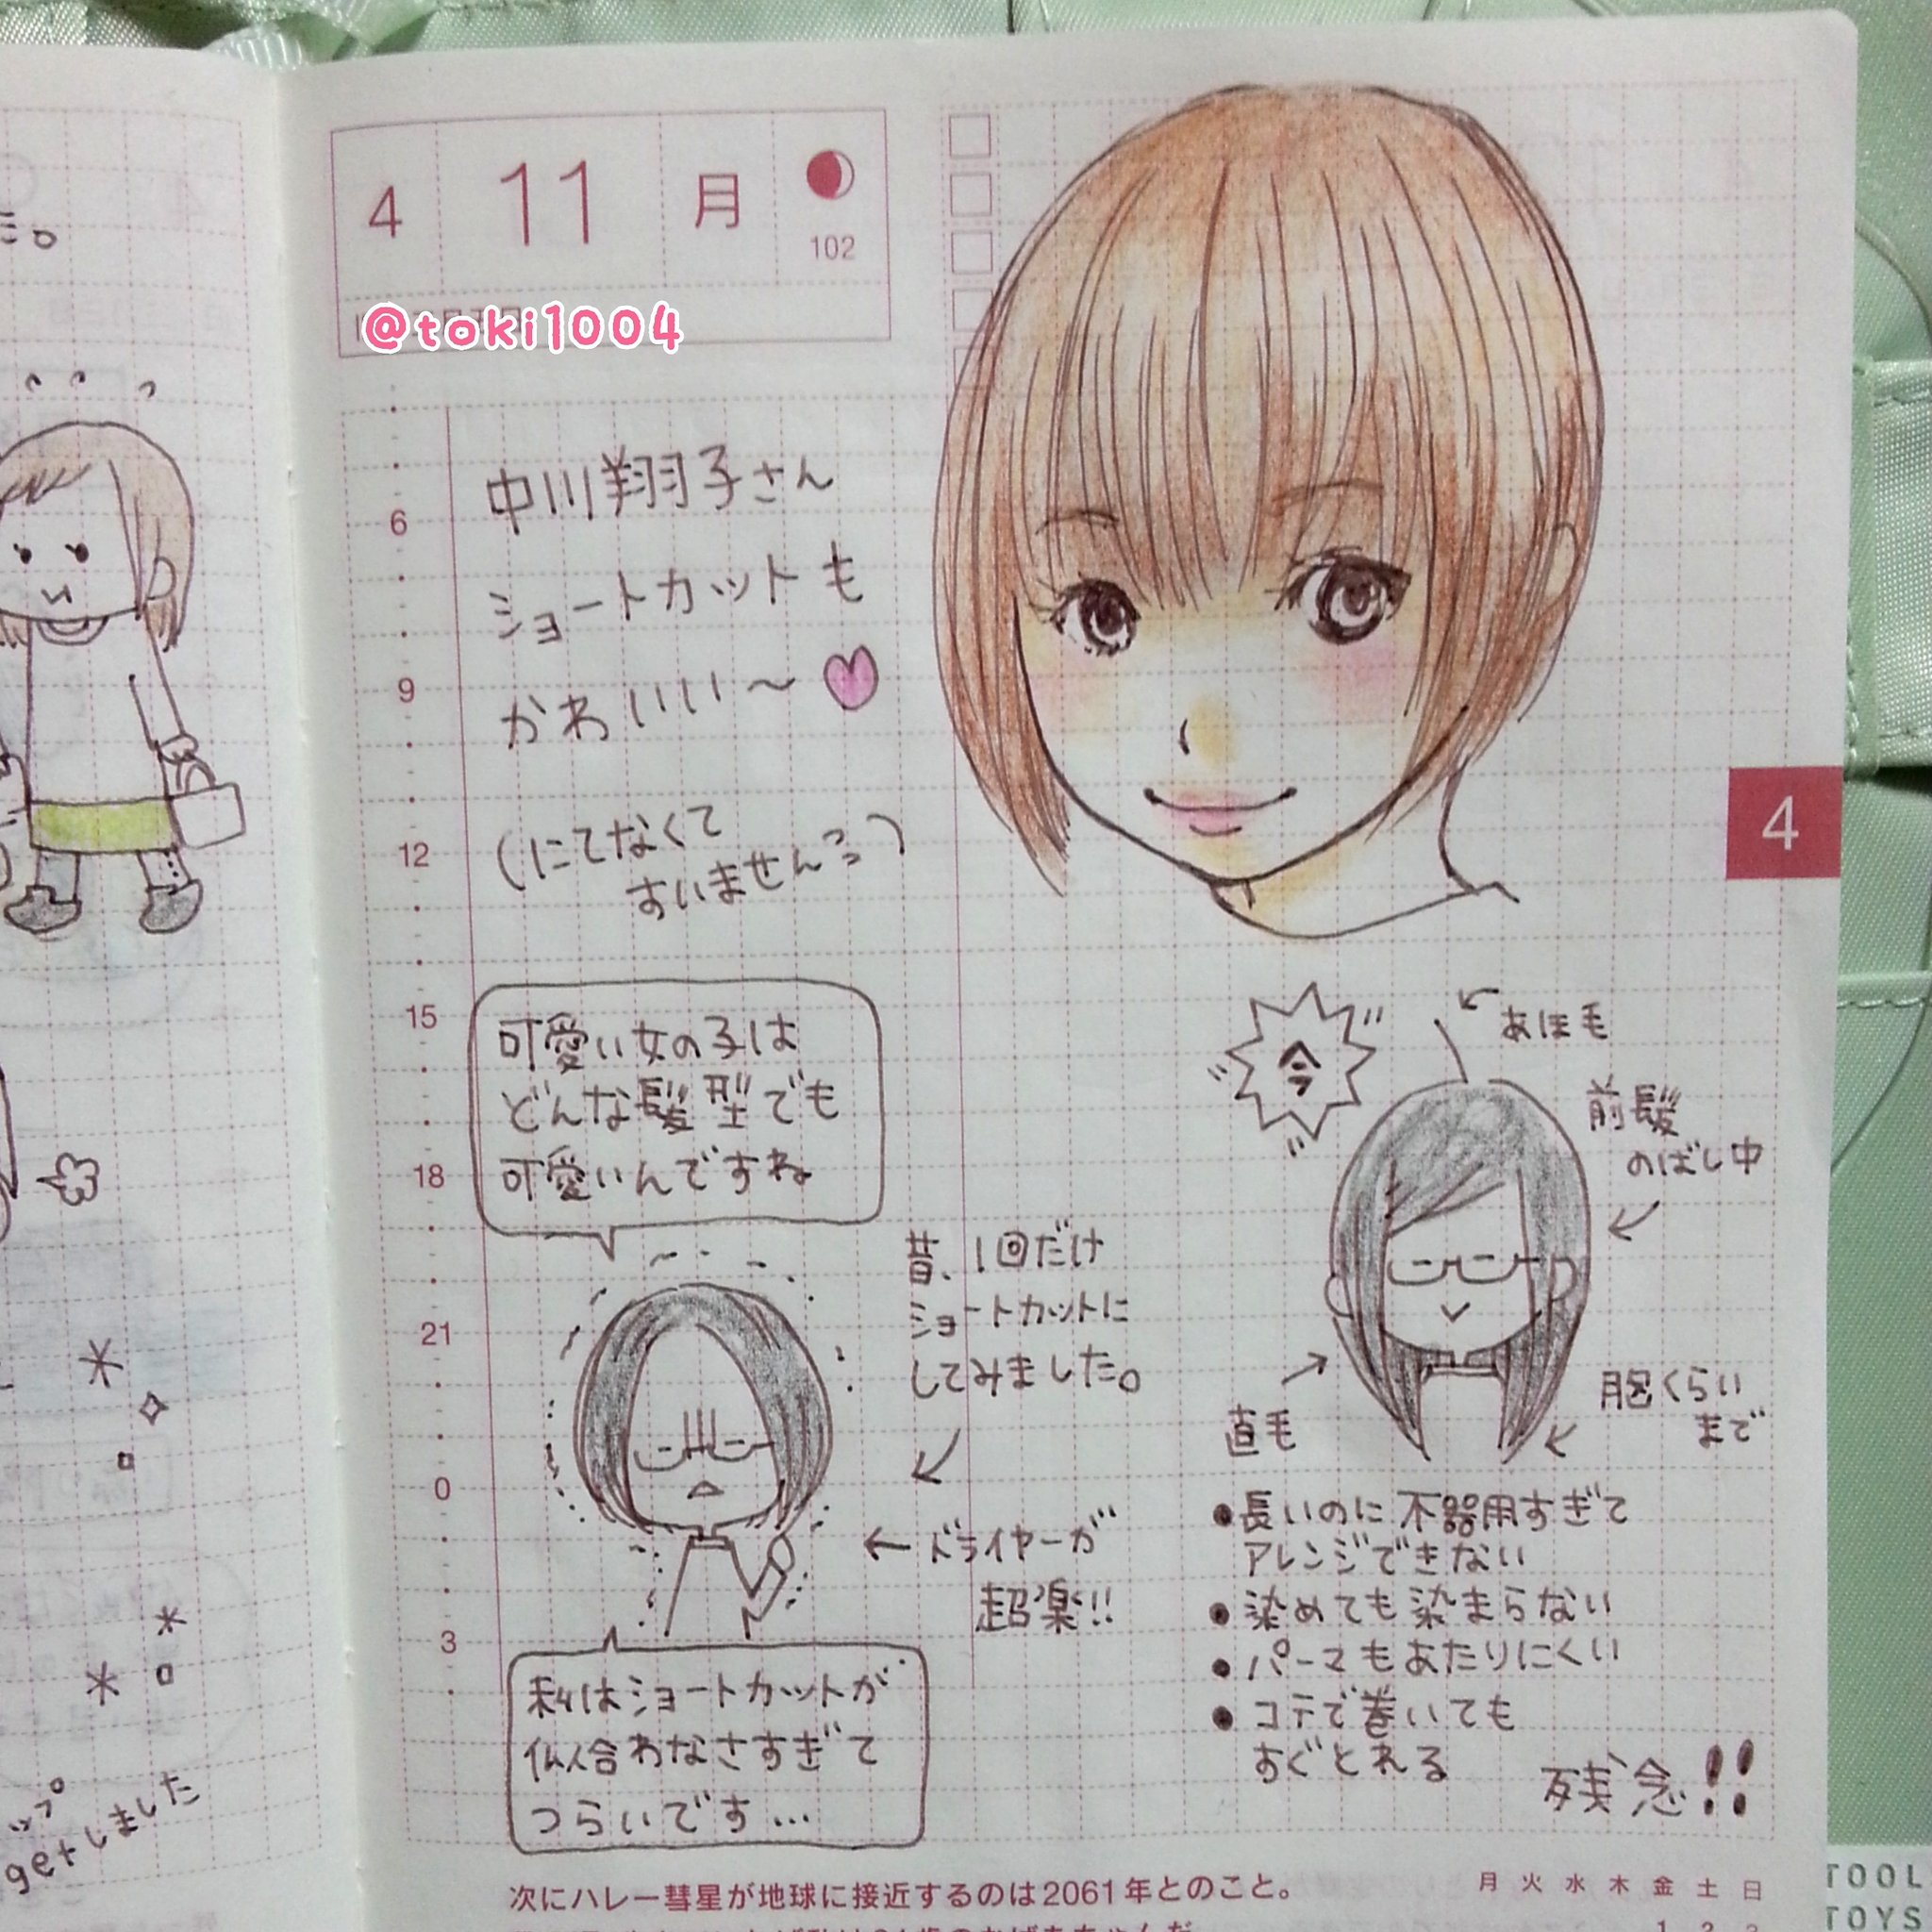 4 11 月
102
@toki1004
中川翔子さん
ショートカットも
かわいい〜♥
(にてなくて
すいません)
6
9
12
15
18
21
0
3
4
可愛い女の子は
どんな髪型でも
可愛いんですね
昔、1回だけ
ショートカットに
してみました。
←ドライヤーが
超楽!!
私はショートカットが
似合わなさすぎて
つらいです…
今
あほ毛
前髪
のばし中
直毛
胸くらい
まで
●長いのに不器用すぎて
アレンジできない
●染めても染まらない
●パーマもあたりにくい
●コテで巻いても
すぐとれる
残念!!
次にハレー彗星が地球に接近するのは2061年とのこと。
月 火 水 木 金 土 日
1 2 3
getしました
TOOL
TOYS